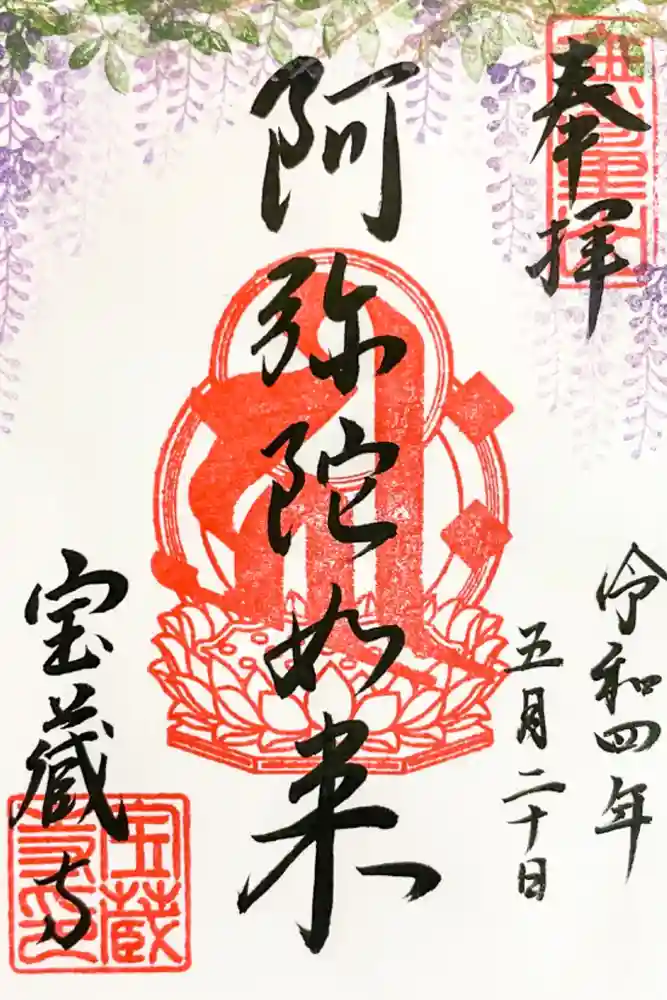 奉拝
令和四年
五月二十日
阿弥陀如来
宝蔵寺
宝蔵
寺印